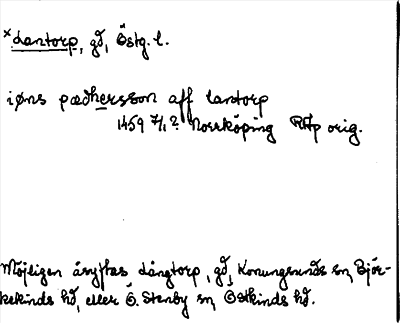 × Lantorp, gd, Östg. l.
iøns pædhersson aff lantorp
1459 7/1? Norrköping RAp orig.
Möjligen åsyftas Långtorp, gd, Konungsunds sn, Björ-
kekinds hd, eller Ö. Stenby sn, Östkinds hd.